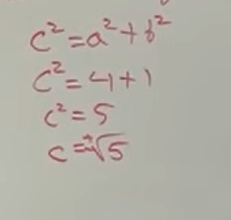 c²=a²+b²
c²=4+1
c²=5
c=±√5